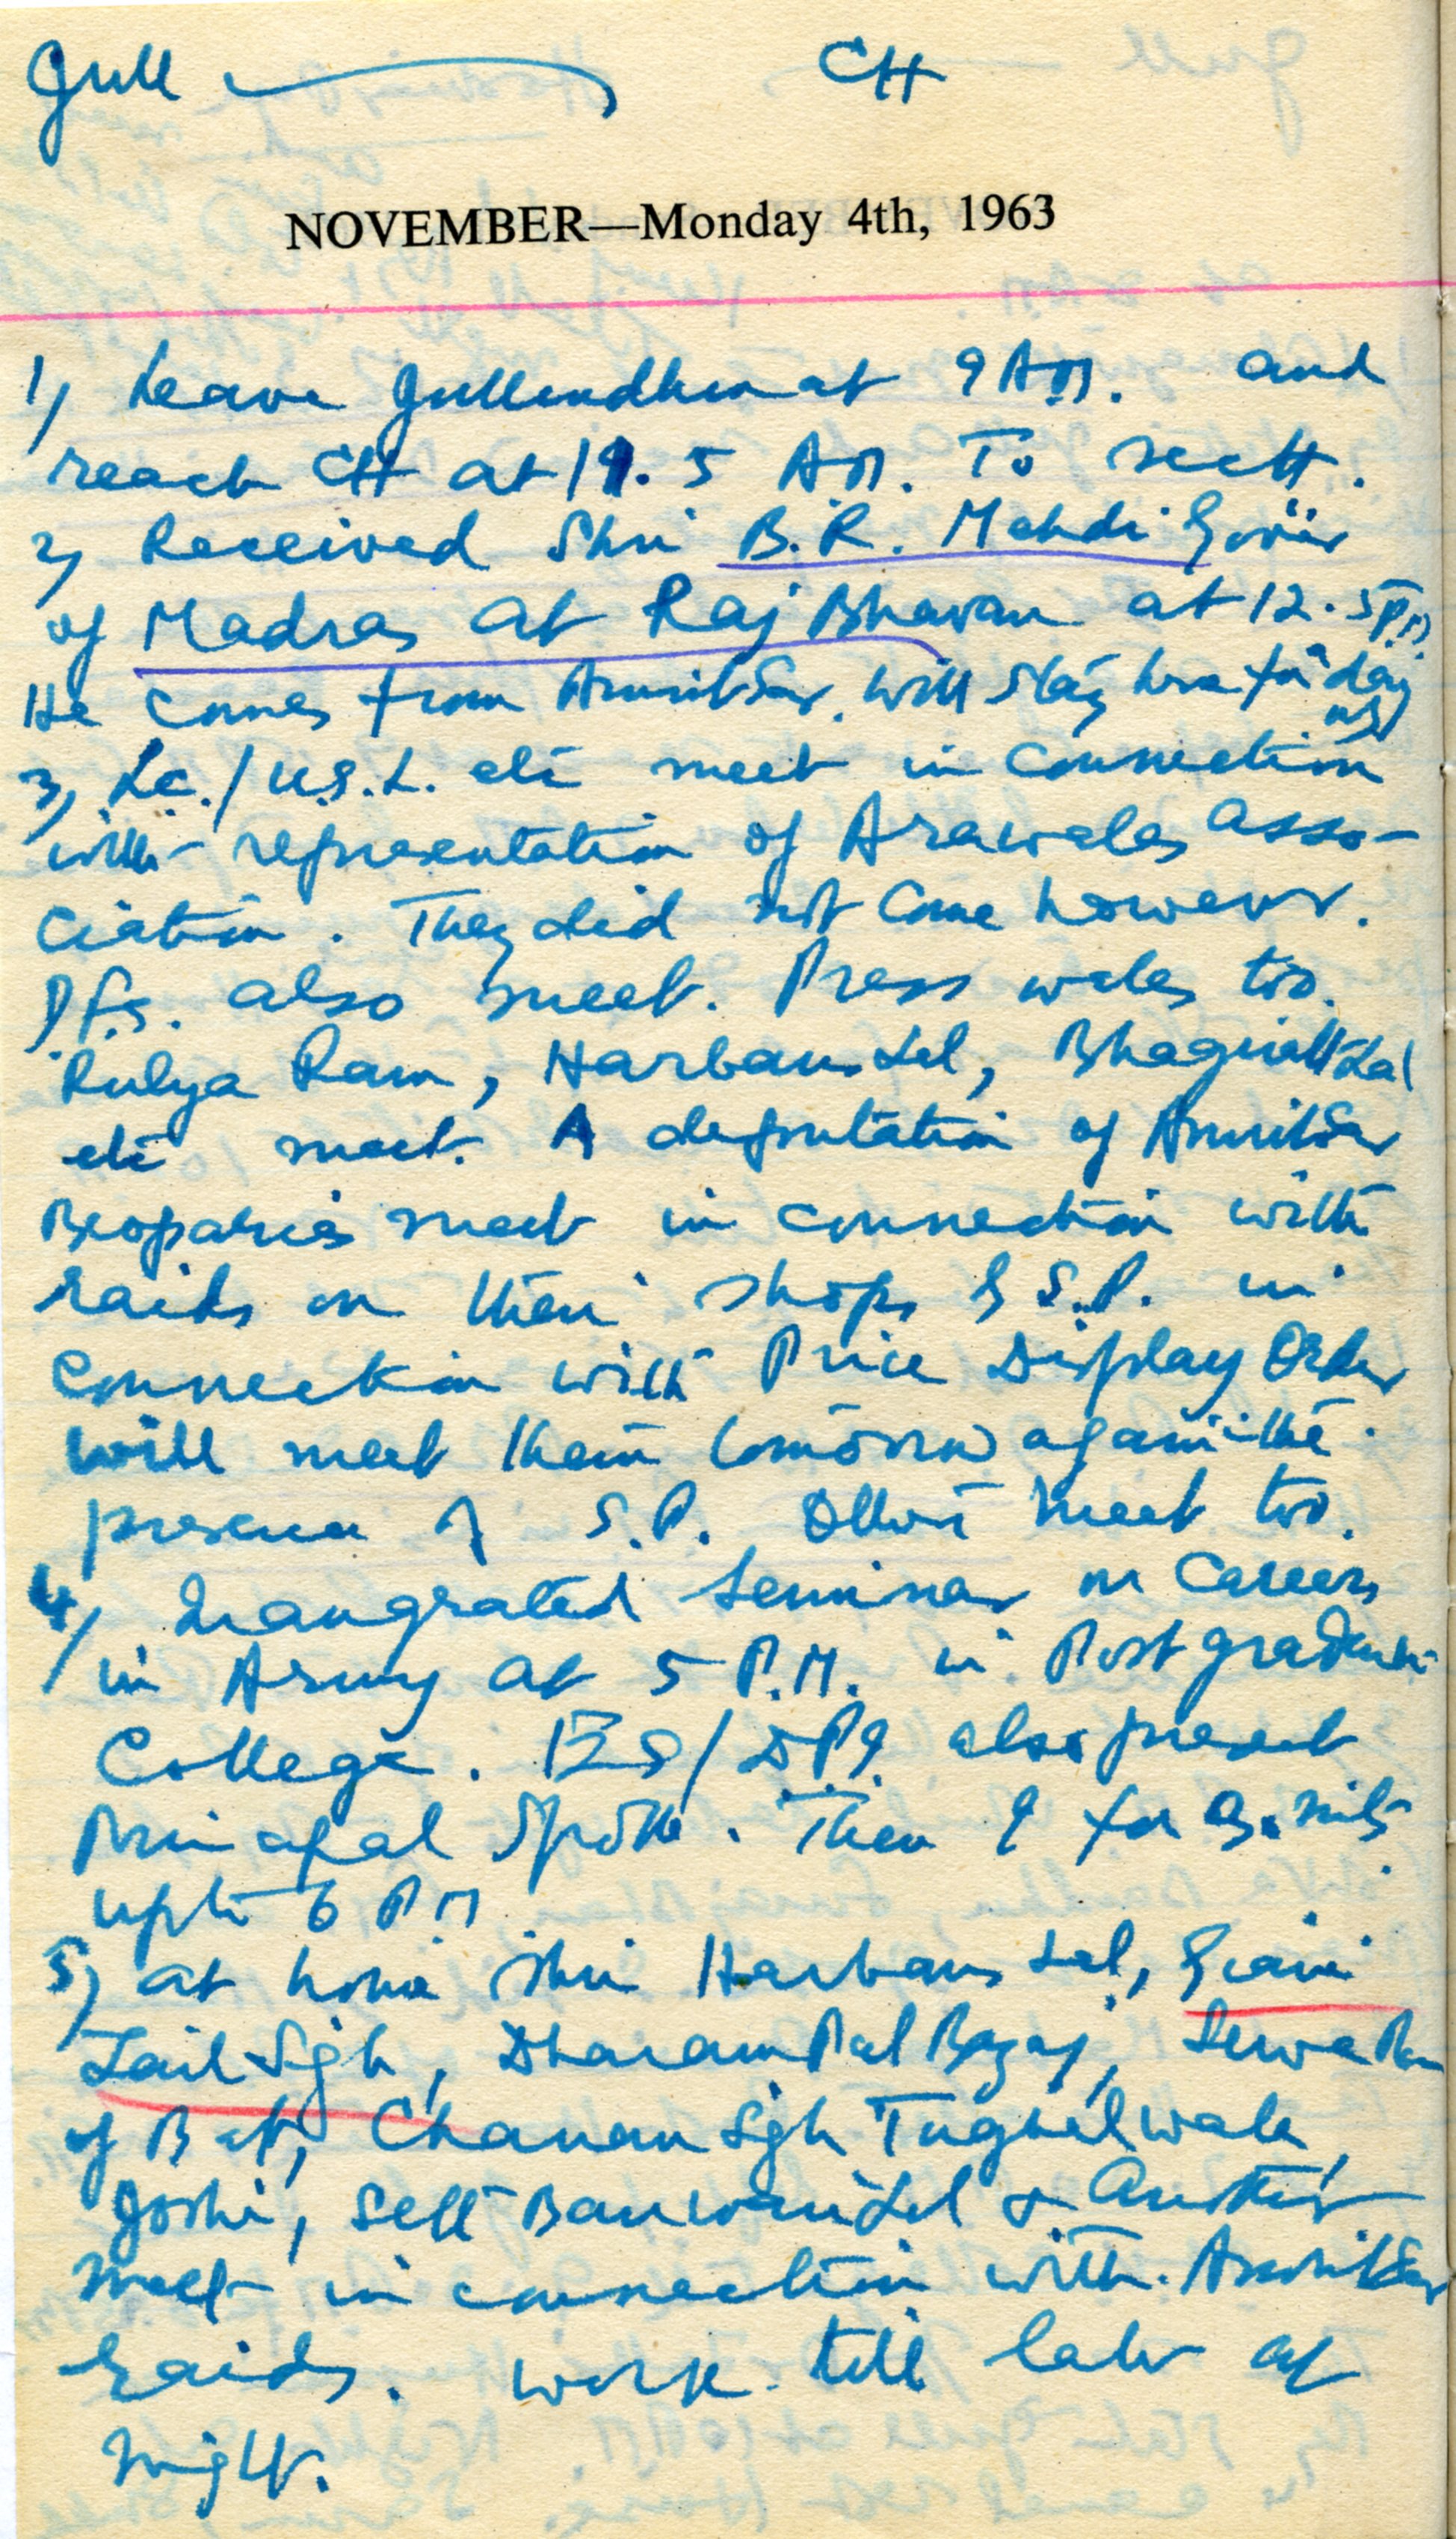 Jull CH
NOVEMBER—Monday 4th, 1963
1) Leave Jullundhur at 9 AM. and
reach CH at 11.5 AM. To sectt.
2) Received Shri B.R. Mehdi Gov'r
of Madras at Raj Bhavan at 12.5 P.M.
He comes from Amritsar. Will stay here for a day
3) L.C./U.S.L. etc meet in connection
with representation of Arawales asso-
ciation. They did not come however.
P.f.s. also meet. Press wales too.
Rulya Ram, Harbans Lal, Bhagwatt Lal
etc meet. A deputation of Amritsar
Beoparies meet in connection with
raids on their shops by S.P. in
connection with Price Display Order
will meet them tomorrow again in the
presence of S.P. Others meet too.
4) Inaugrated Seminar on Careers
in Army at 5 P.M. in Post graduate
College. ES/DPI also present
Principal Spoke. Then I for mits
upto 6 PM
5) at home Shri Harbans Lal, Giani
Zail Sigh, Dharam Pal Bazaj, Sewa Ram
of B Chanan Sgh Tugwalwala,
Joshi, Seth Banwari Lal & Another
meet in connection with Amritsar
raids. work till late at
night.